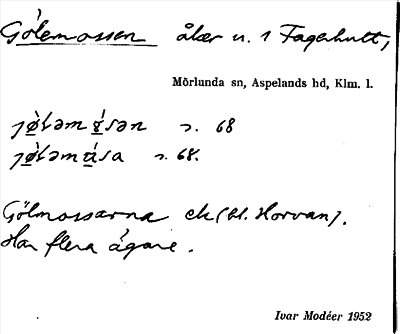 Gölemossen åker n. 1 Fagerhult,
Mörlunda sn, Aspelands hd, Klm. l.
s. 68
s. 68.
Gölmossarna ek (bl. Horvan).
Har flera ägare.
Ivar Modéer 1952